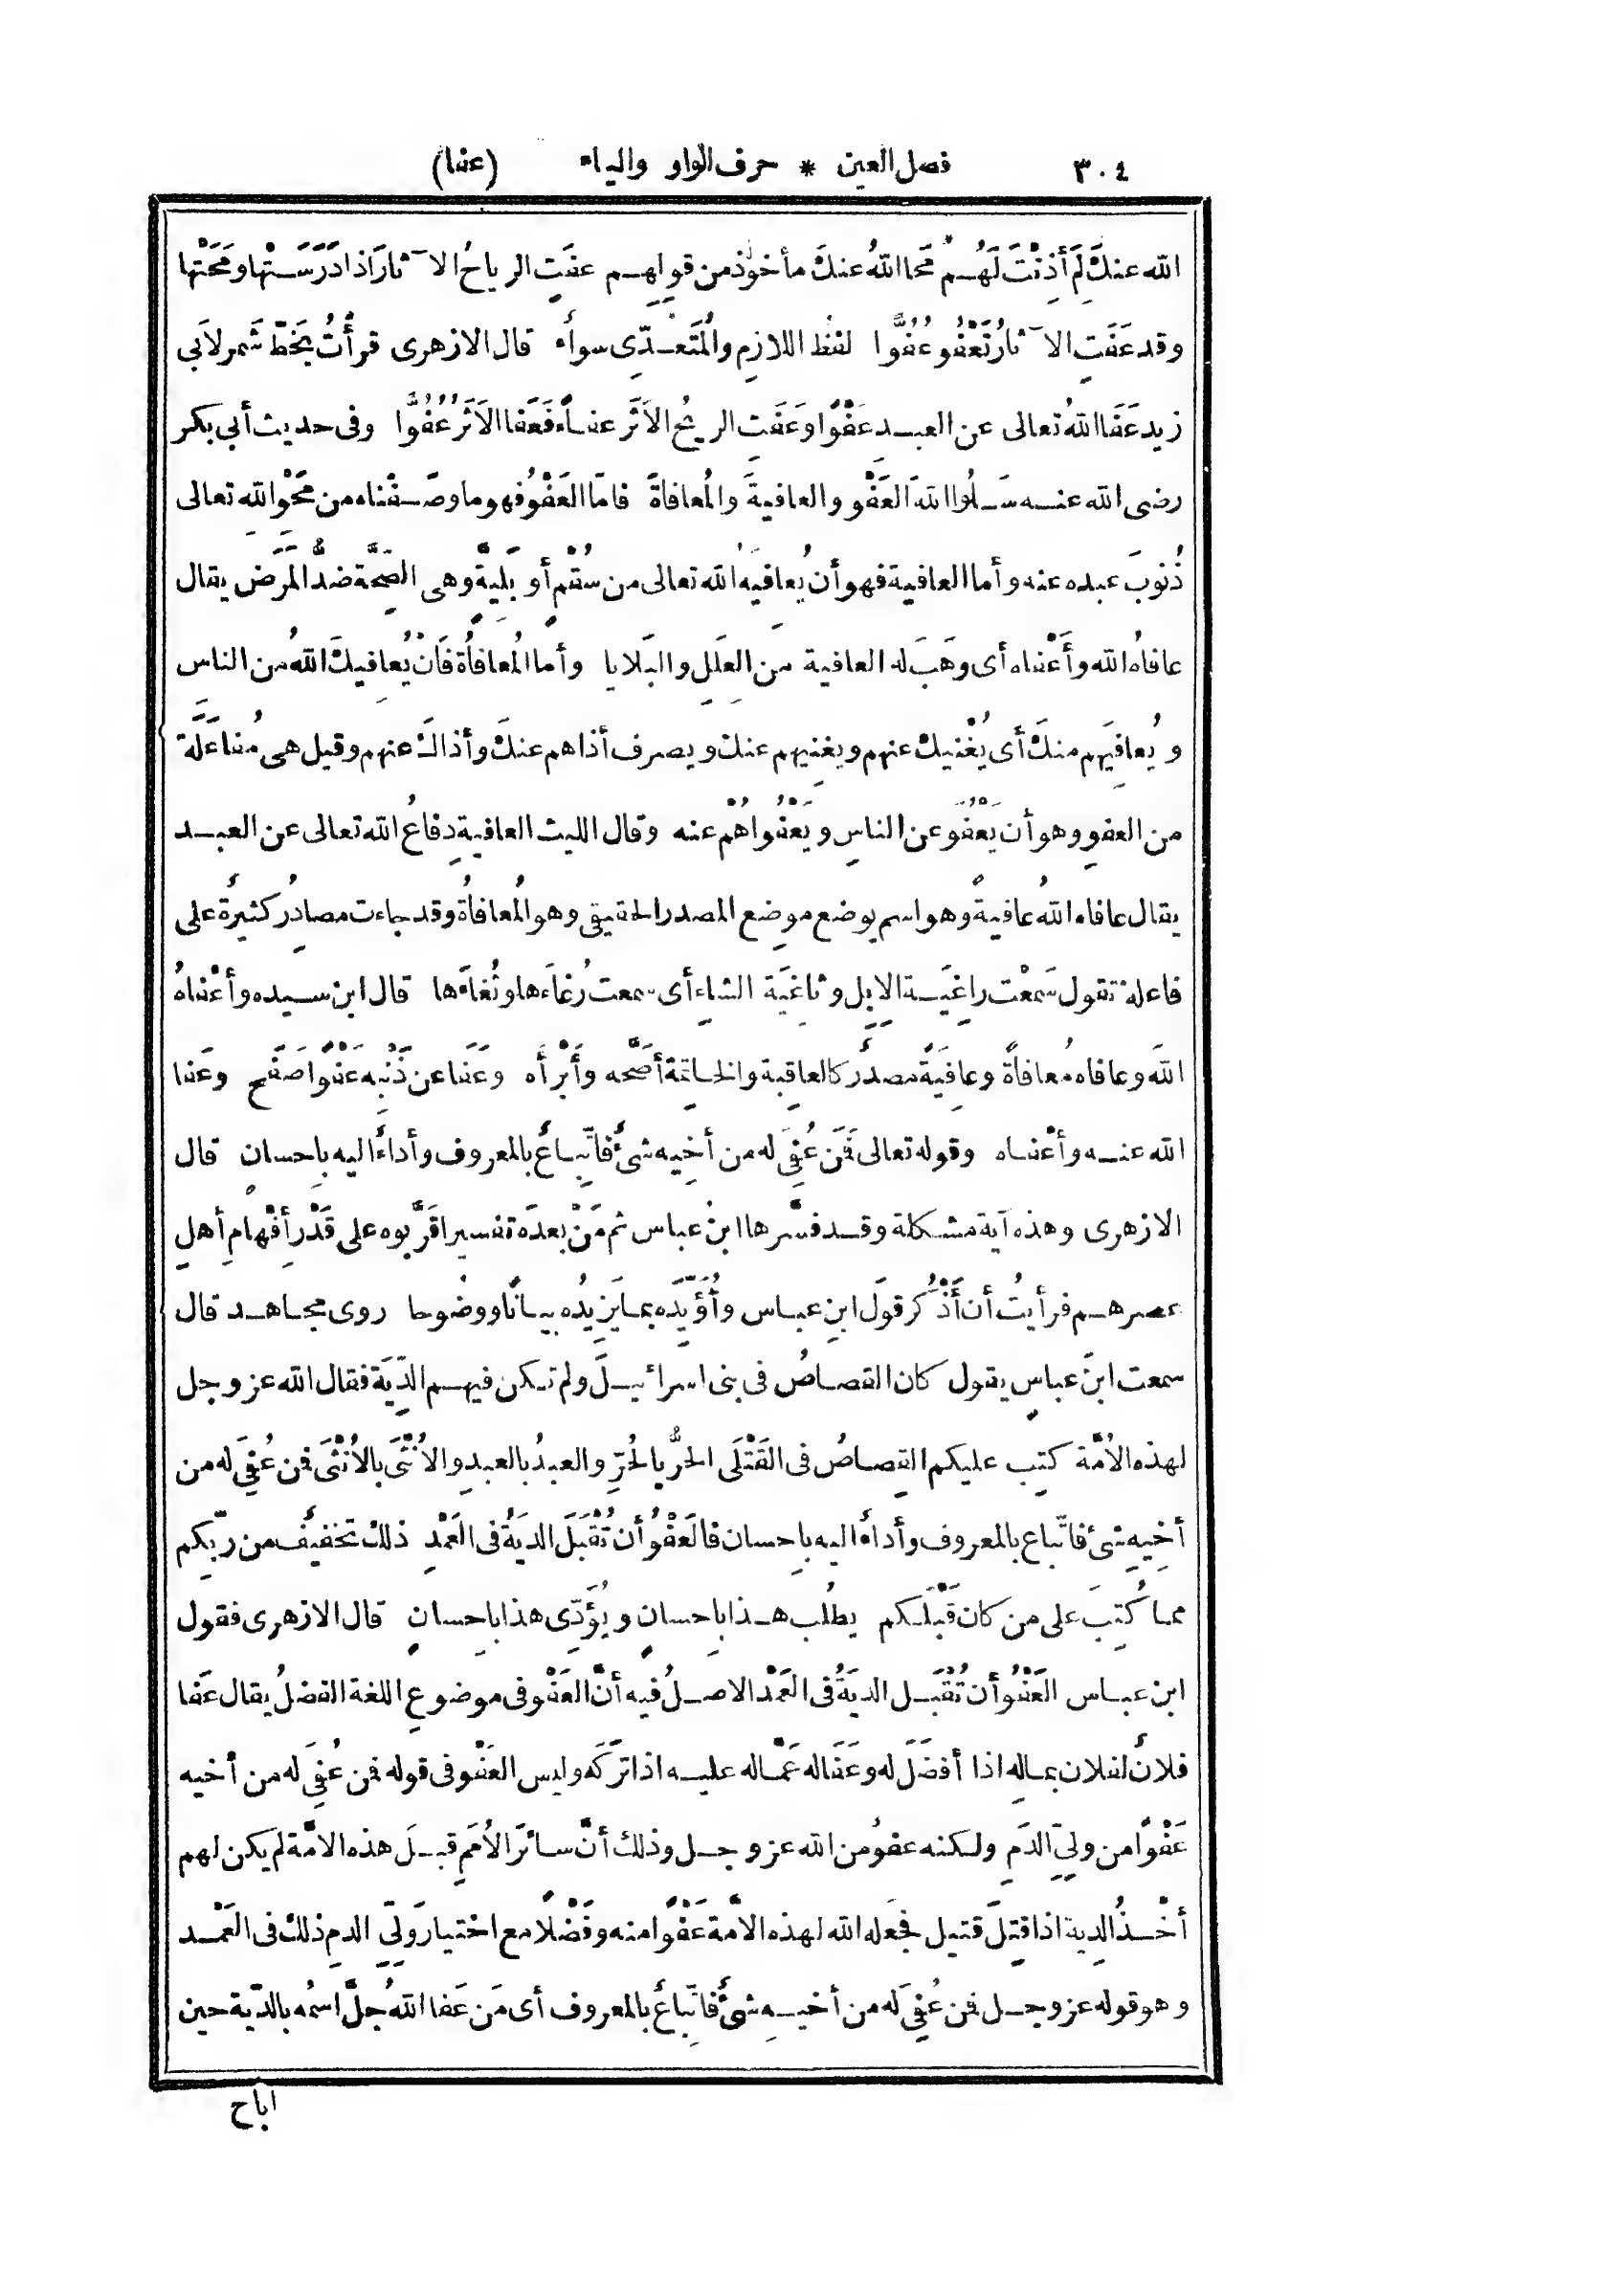 ٣٠٤ فصل العين * حرف الواو والياء (عفا)
الله عنكَ لِمَ أَذِنْتَ لَهُم مَحا اللهُ عنكَ مأخوذ من قولهم عفَتِ الرياحُ الآثارَ اذا دَرَسَتْها ومَحَتْها
وقد عَفَتِ الآثارُ تَعْفُو عُفُوًّا لفظ اللازِمِ والمُتَعدِّى سواءٌ قال الازهرى قرأْتُ بخَطّ شَمر لاَبى
زيد عَفَا اللهُ تعالى عن العبد عَفْوًا وعَفَتِ الريحُ الاَثَر عفاءً فعَفا الاَثَرُ عُفُوًّا وفى حديث أبى بكر
رضى الله عنه سَلُوا اللهَ العَفْو والعافيةَ والمُعافاةَ فامّا العَفْوُ فهو ما وصَفْناه من مَحْوِ الله تعالى
ذُنوبَ عبده عنه وأما العافية فهو أن يُعافيَه الله تعالى من سُقْمٍ أو بَلِيَّةٍ وهى الصِّحَّة ضدُّ المَرَض يقال
عافاه الله وأَعْفاه أى وهَبَ له العافية مِن العِلَلِ والبَلايا وأما المُعافاةُ فَأَنْ يُعافِيكَ اللهُ من الناسِ
ويُعافِيَهم منكَ أى يُغْنيك عنهم ويغنِيهم عنك ويصرف أذاهم عنكَ وأذاك عنهم وقيل هى مُفاعَلَة
من العفوِ وهو أن يَعْفُوَ عن الناسِ ويَعْفُوا هُمْ عنه وقال الليث العافية دِفاعُ الله تعالى عن العبد
يقال عافاه اللهُ عافيةً وهو اسم يوضع موضِع المصدر الحقيقى وهو المُعافاةُ وقد جاءت مصادِرُ كثيرةٌ على
فاعلة تقول سَمعْت راغِيَة الاِبِل وثاغِيَة الشاءِ أى سمعت رُغاءَها وثُغاءَها قال ابن سيده وأعْفاهُ
اللهُ وعافاه مُعافاةً وعافِيَةً مصدرٌ كالعاقِبة والخاتمة أَصَّحه وأَبْرأَه وعَفا عن ذَنْبِه عَفْوًا صَفَح وعَفا
الله عنه وأعْفاه وقوله تعالى فَمَن عُفِىَ له من أخِيه شىءٌ فاتِّباعٌ بالمعروف وأداءٌ اليه بإحسانٍ قال
الازهرى وهذه آية مشكلة وقد فسَّرها ابنُ عباس ثم مَنْ بعدَه تفسيرا قَرَّبوه على قَدْرِ أفْهامِ أهلِ
عصرهم فرأيتُ أن أَذْكُر قولَ ابنِ عباس وأُؤَيِّدَه بما يَزِيدُه بيانًا ووضُوحا روى مجاهد قال
سمعت ابنَ عباسٍ يقول كان القصاصُ فى بنى اسرائيلَ ولم تكن فيهم الدِّيَة فقال الله عز وجل
لهذه الاُمَّة كتِب عليكم القِصاصُ فى القَتْلَى الحُرُّ بالحُرِّ والعبدُ بالعبدِ والاُنْثَى بالاُنْثَى فمن عُفِىَ له من
أخِيهِ شىءٌ فاتّباع بالمعروف وأداءٌ اليه بإحسان فالعَفْوُ أن تُقْبَلَ الديَةُ فى العَمْدِ ذلك تخفيفٌ من ربّكم
مما كُتِبَ على من كان قَبْلَكم يطلُب هذا بإحسانٍ ويُؤَدِّى هذا بإحسانٍ قال الازهرى فقول
ابن عباس العَفْوُ أن تُقْبَل الديَةُ فى العَمْد الاصلُ فيه أنَّ العَفْو فى موضوعِ اللغة الفضلُ يقال عَفا
فلانٌ لفلان بمالِه اذا أفضَلَ له وعَفَا له عَمَّا له عليه اذا تَركَه وليس العَفْو فى قوله فمن عُفِىَ له من أخيه
عَفْوًا من ولىِّ الدَمِ ولكنه عفوٌ من الله عز وجل وذلك أنَّ سائرَ الاُمَمِ قبلَ هذه الامَّة لم يكن لهم
أخْذُ الدِية اذا قُتِلَ قتيل فجعَله الله لهذه الاَّمة عَفْوًا منه وفَضْلًا مع اختيار وَلِىِّ الدمِ ذلك فى العَمْد
وهو قوله عز وجل فمن عُفِىَ له من أخيهِ شىءٌ فاتِّباعٌ بالمعروف أى مَن عَفا اللهُ جلَّ اسمُه بالدّية حين
اباح